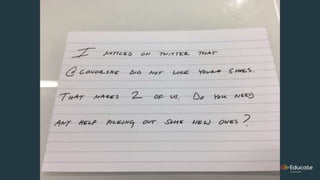 I NOTICED ON TWITTER THAT
@CONORSHE DID NOT LIKE YOUR SHOES.
THAT MAKES 2 OF US. DO YOU NEED
ANY HELP PICKING OUT SOME NEW ONES?
Educate